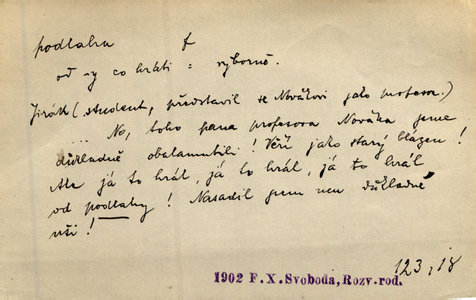 podlaha f
od -y co hráti = výborně.
Jirák (student, představil se Novákovi jako profesor.)
... No, toho pana profesora Nováka jsme
důkladně obalamutili! Věří jako starý blázen!
Ale já to hrál, já to hrál, já to hrál
od podlahy! Nasadil jsem mu důkladně
uši!
123, 18
1902 F.X.Svoboda, Rozv.rod.